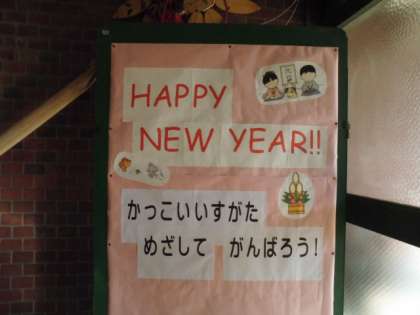 HAPPY
NEW YEAR!!
かっこいいすがた
めざして がんばろう!